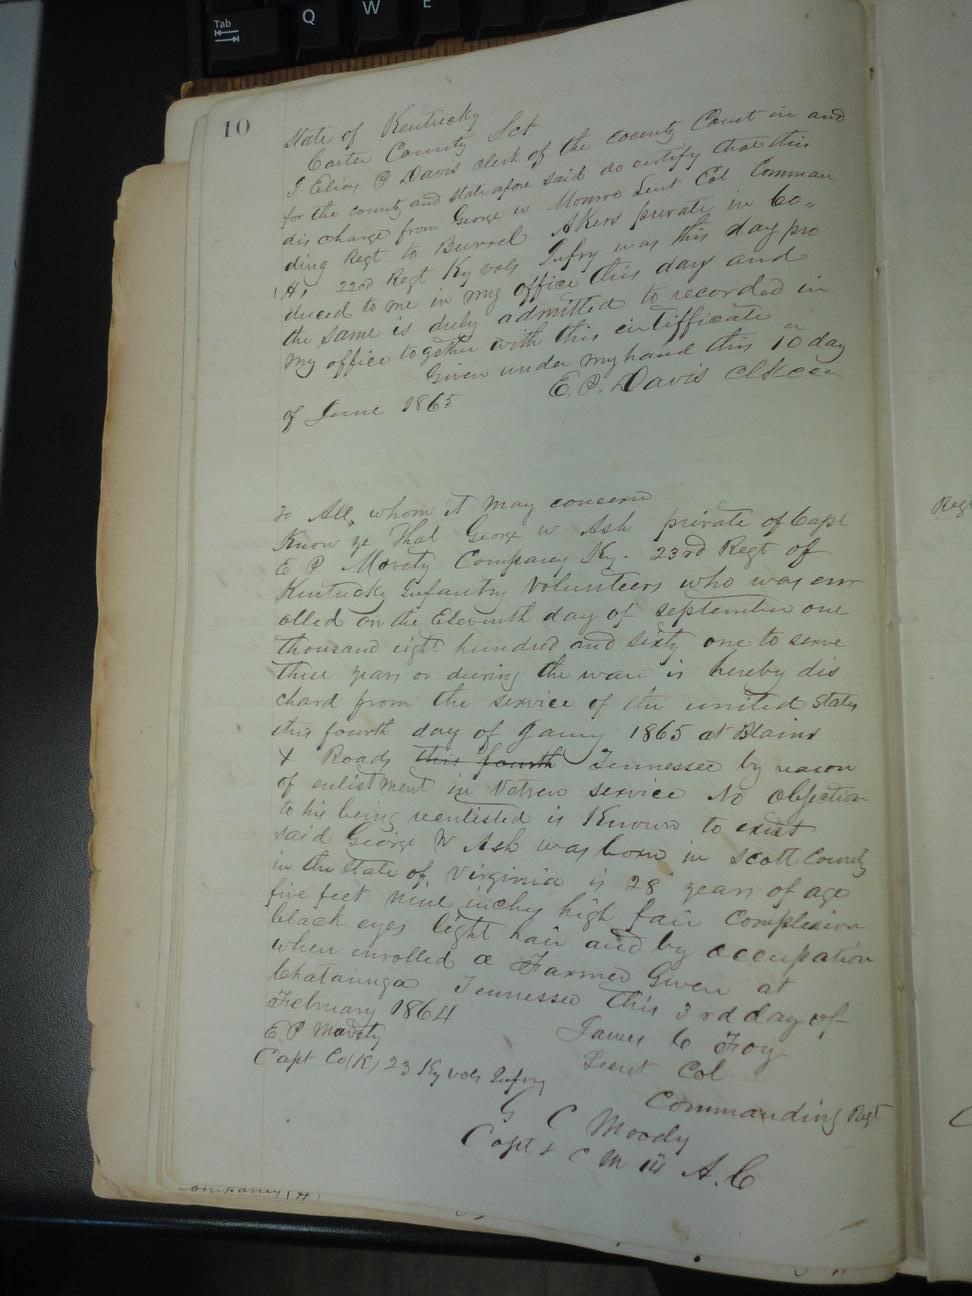 Tab
Q
W
E
10
State of Kentucky
Carter County Sct
I Elias P Davis clerk of the county Court in and
for the county and state afore said do certify that this
dis charge from George w Monroe Leut Col Comman
ding Regt to Burrel Akers private in Co.
(H, 22nd Regt Ky vols Infry was this day pro
duced to me in my office this day and
the same is duly admitted to recorded in
my office together with this certifficate
Given under my hand this 10 day
of June 1865 E. P. Davis Clk
To All, whom it may concern
Know ye That George w Ash private of Capt
E P Movety Company Ky. 23rd Regt of
Kentucky Infantry Volunteers who was enr
olled on the Eleventh day of september one
thousand eight hundred and sixty one to serve
three years or during the ware is hereby dis
chard from the service of the united States
this fourth day of Janry 1865 at Blains
X Roads this fourth Tennessee by reason
of enlistment in Vetren service No objection
to his being reenlisted is Known to exist
said George W Ash was born in Scott County
in the State of Virginia is 28 years of age
five feet nine inchs high fair Complexion
black eyes light hair and by occupation
when enrolled a Farmer Given at
Chatainuga Tennessee this 3rd day of
February 1864
James C Foy
E P Movety
Leut Col
Capt Co(K) 23 Ky vols Infry
Commanding Regt
G C Moody
Capt & C M A. C
Company (H)
Reg